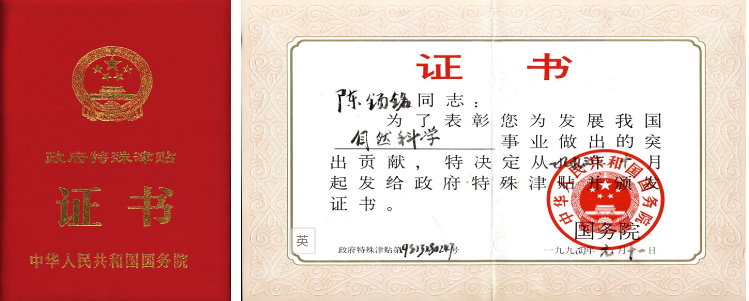 政府特殊津贴
证书
中华人民共和国国务院
证书
陈 铭同志：
为了表彰您为发展我国
自然科学 事业做出的突
出贡献，特决定从 月
起发给政府特殊津贴并颁发
证书。
中华人民共和国国务院
国务院
政府特殊津贴第 号
一九九四年元月十一日
英